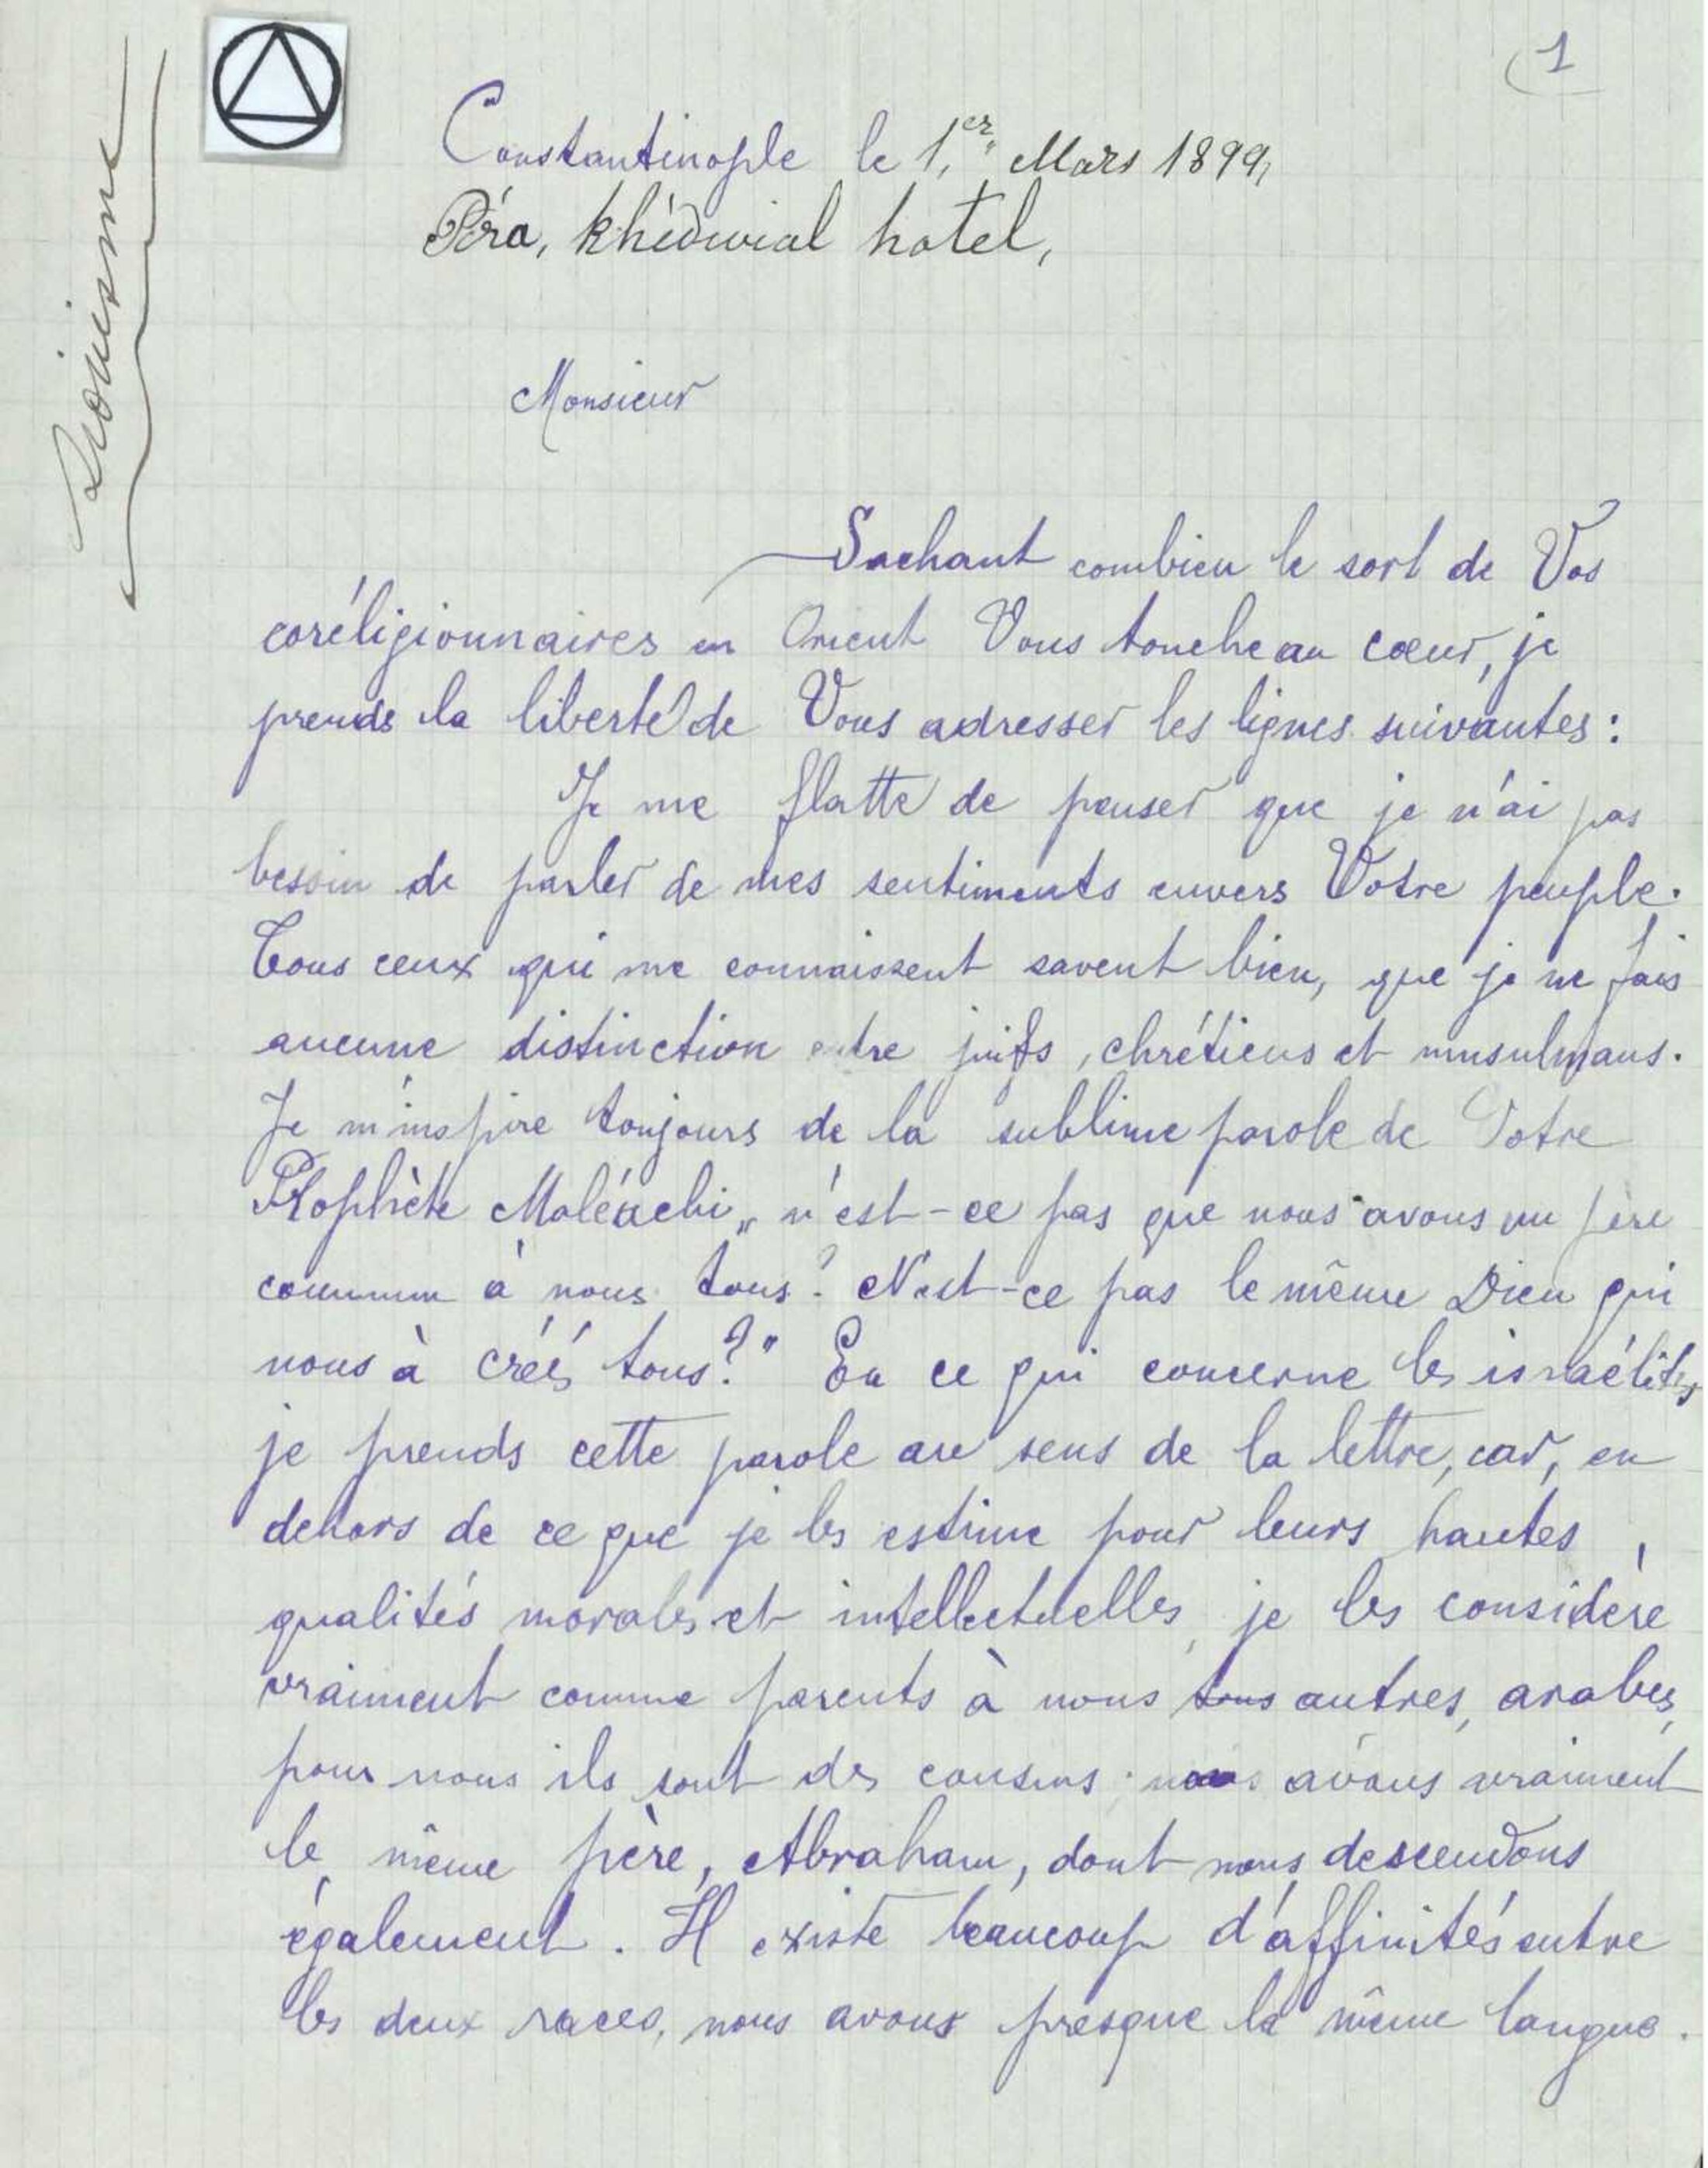 1
Sionisme
Constantinople le 1er Mars 1899,
Péra, Khédivial hotel,
Monsieur
Sachant combien le sort de Vos
coréligionnaires en Orient Vous touche au cœur, je
prends la liberté de Vous adresser les lignes suivantes :
Je me flatte de penser que je n'ai pas
besoin de parler de mes sentiments envers Votre peuple.
Tous ceux qui me connaissent savent bien, que je ne fais
aucune distinction entre juifs, chrétiens et musulmans.
Je m'inspire toujours de la sublime parole de Votre
Prophète Maléachi „ n'est-ce pas que nous avons un père
commun à nous tous ? N'est-ce pas le même Dieu qui
nous à créés tous ?" En ce qui concerne les israélites
je prends cette parole au sens de la lettre, car, en
dehors de ce que je les estime pour leurs hautes
qualités morales et intellectuelles, je les considère
vraiment comme parents à nous tous autres, arabes,
pour nous ils sont des cousins ; nous avons vraiment
le même père, Abraham, dont nous descendons
également. Il existe beaucoup d'affinités entre
les deux races, nous avons presque la même langue.